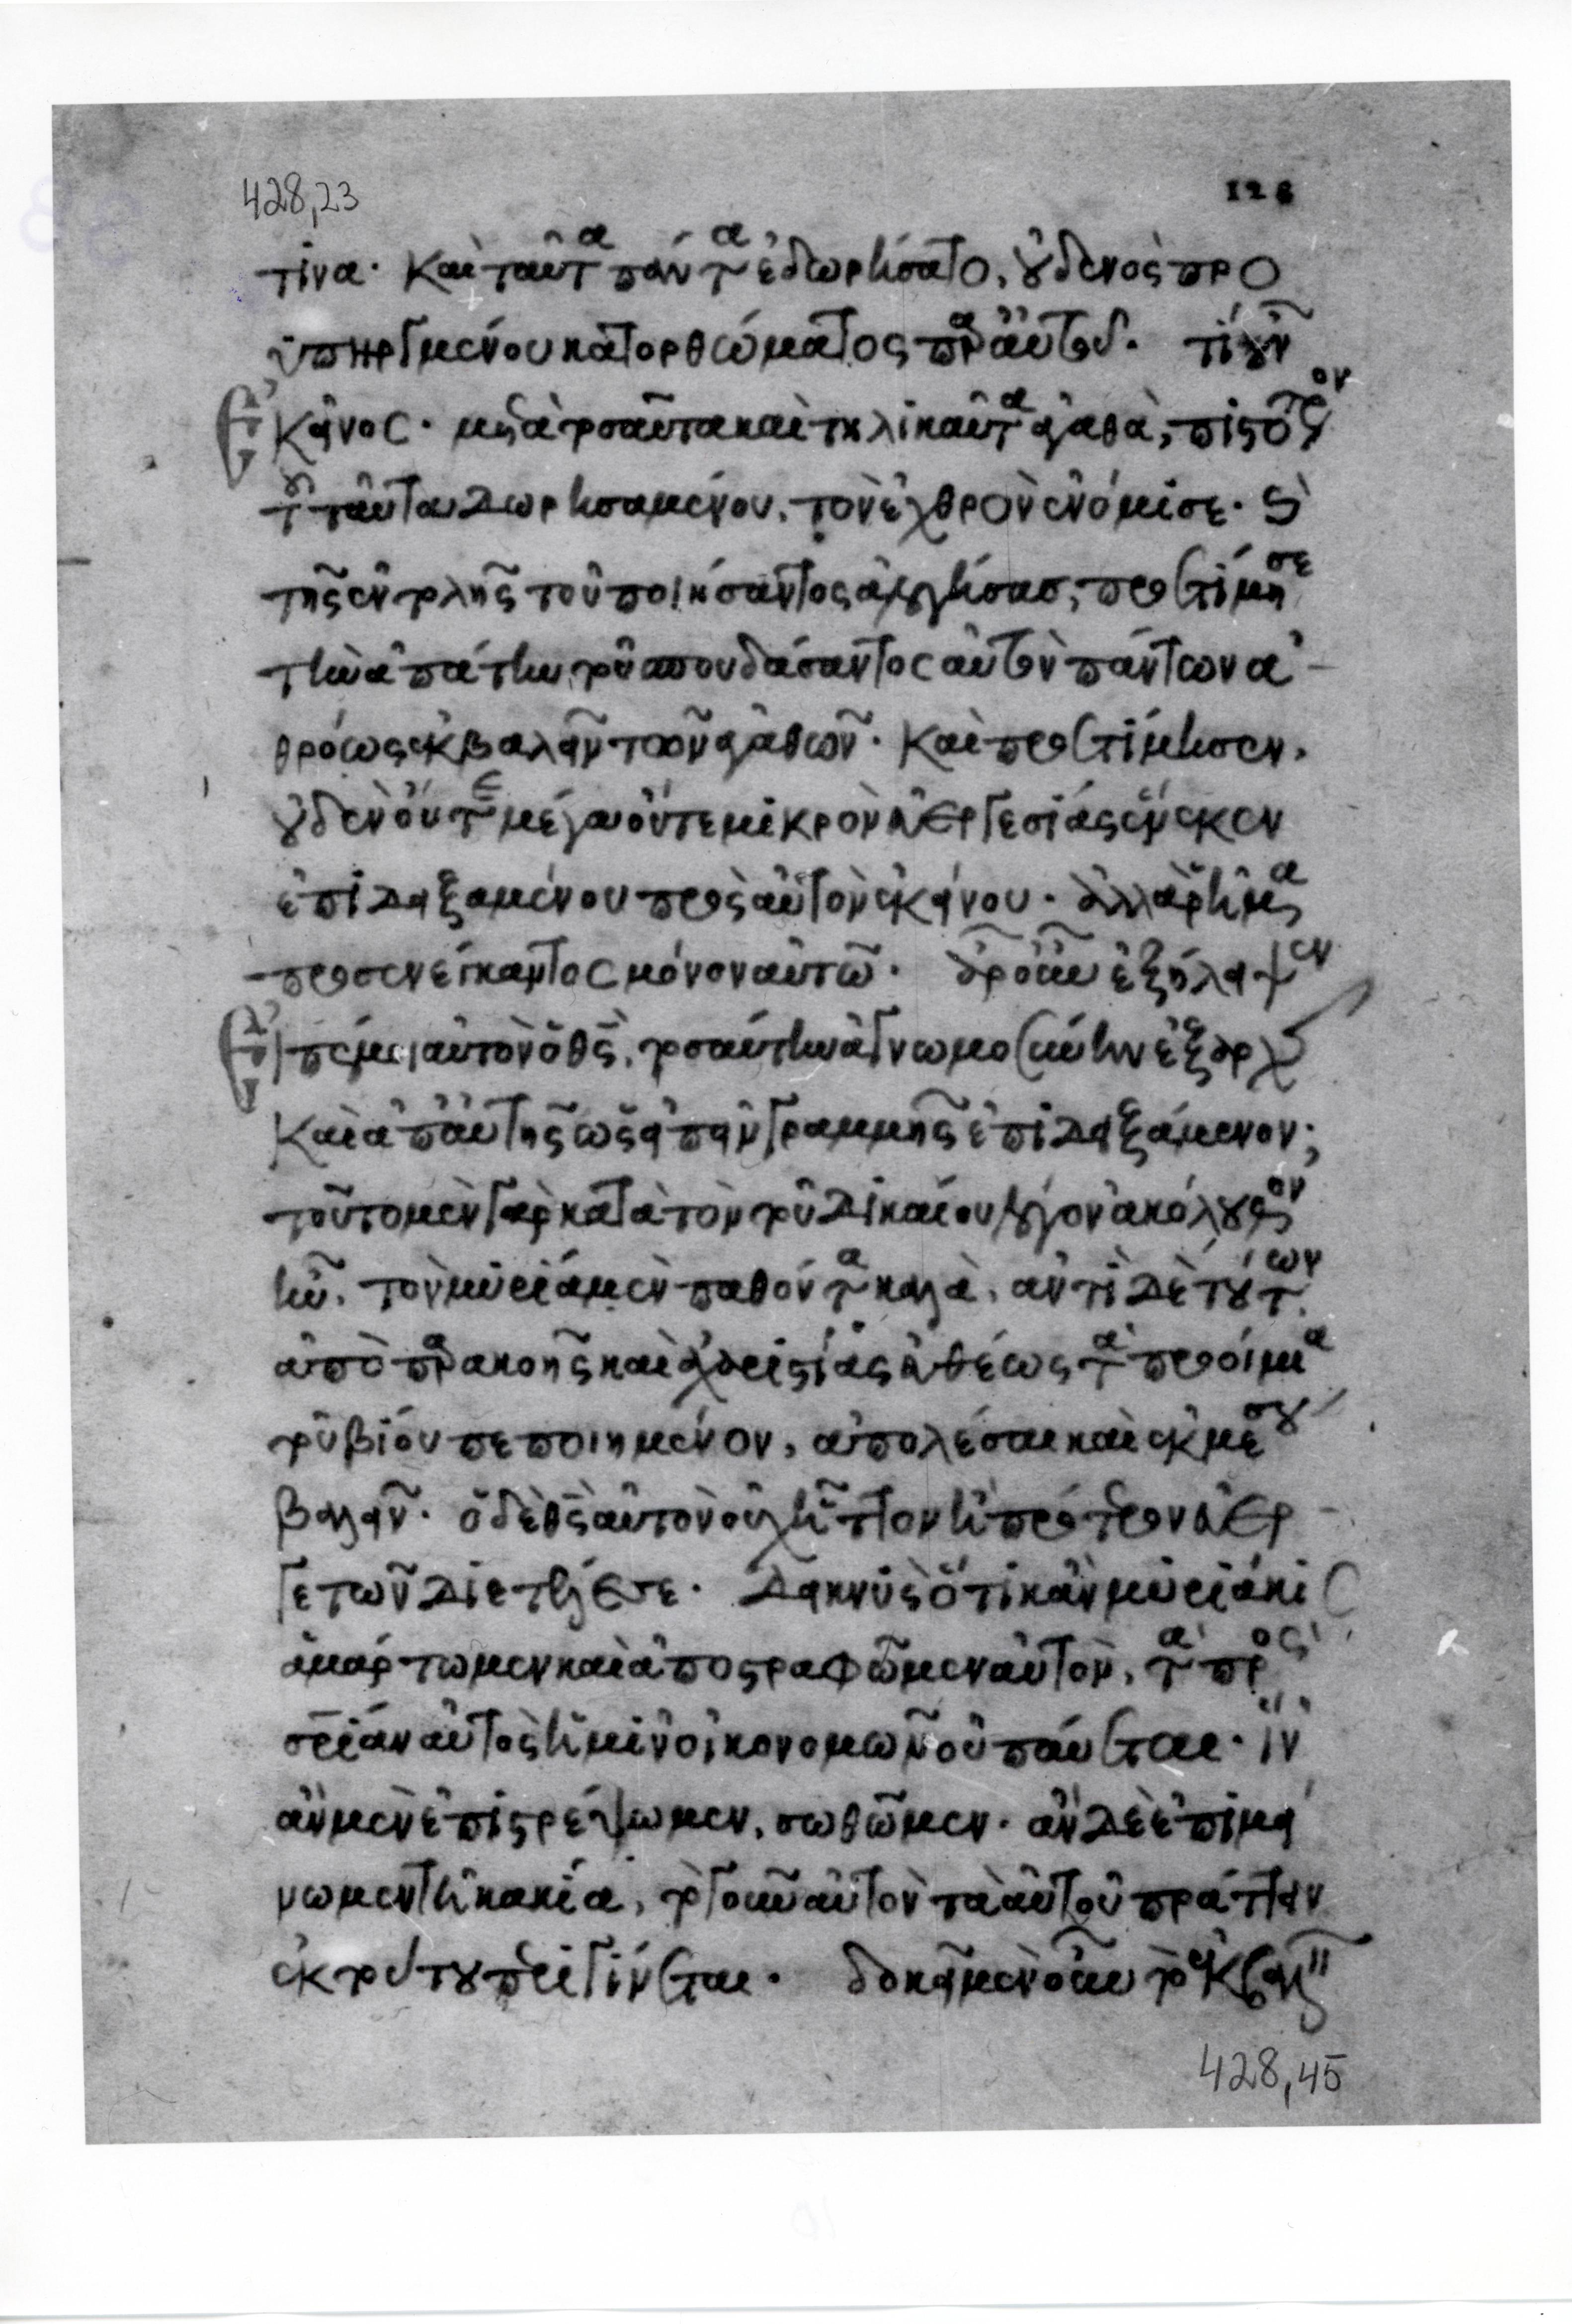 428,23
128
τίνα· Καὶ ταῦτα πάντα ἐδωρήσατο, οὐδενὸς προ
ὑπηργμένου κατορθώματος παρ' αὐτοῦ. τί οὖν
ἐκεῖνος· μετὰ τοσαῦτα καὶ τηλικαῦτα ἀγαθὰ, πιστότερον
τοῦ ταῦτα δωρησαμένου, τὸν ἐχθρὸν ἐνόμισε· καὶ
τῆς ἐντολῆς τοῦ ποιήσαντος ἀλογήσας, προετίμησε
τὴν ἀπάτην τοῦ σπουδάσαντος αὐτὸν πάντων ἀ
θρόως ἐκβαλεῖν τῶν ἀγαθῶν· Καὶ προετίμησεν,
οὐδὲν οὔτε μέγα οὔτε μικρὸν εὐεργεσίας ἕνεκεν
ἐπιδειξαμένου πρὸς αὐτὸν ἐκείνου· ἀλλὰ ῥήματα
προσενεγκαντος μόνον αὐτῶ· ἆρ' οὖν ἐξήλειψεν
ἐπέμει αὐτὸν ὁ θεὸς, τοσαύτην ἀγνωμοσύνην ἐξ ἀρχῆς
Καὶ ἀπ' αὐτῆς ὡς εἰπεῖν γραμμῆς ἐπιδειξάμενον;
τοῦτο μὲν γὰρ κατὰ τὸν τοῦ δικαίου λόγον ἀκόλουθον
ἦν, τὸν μυρία μὲν παθόντα καλὰ, ἀντὶ δὲ τούτων
ἀπὸ παρακοῆς καὶ ἀχαριστίας εὐθέως τὰ προοίμια
τοῦ βίου πεποιημένον, ἀπολέσαι καὶ ἐκ μέσου
βαλεῖν· ὁ δὲ θεὸς αὐτὸν οὐχ ἧττον ἢ πρότερον εὐερ
γετῶν διετέλεσε· δεικνὺς ὅτι κἂν μυριάκις
ἁμάρτωμεν καὶ ἀποστραφῶμεν αὐτὸν, τὰ πρὸς
σωτηρίαν αὐτὸς ἡμῖν οἰκονομῶν οὐ παύεται· ἵν'
ἂν μὲν ἐπιστρέψωμεν, σωθῶμεν· ἂν δὲ ἐπιμεί
νωμεν τῆ κακία, τὸ γοῦν αὐτὸν τὰ αὐτοῦ πράττειν
ἐκ τούτου περιγίνεται· δοκεῖ μὲν οὖν τὸ ἐκβαλεῖν
428,45